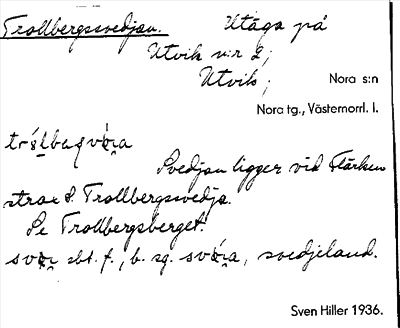 Trollbergssvedjan. Utäga på
Utvik n:r 2;
Utvik; Nora s:n
Nora tg., Västernorrl. l.
Svedjan ligger vid Flärken
strax S. Trollbergssvedja.
Se Trollbergsberget.
sbt. f., b. sg. svedjeland.
Sven Hiller 1936.